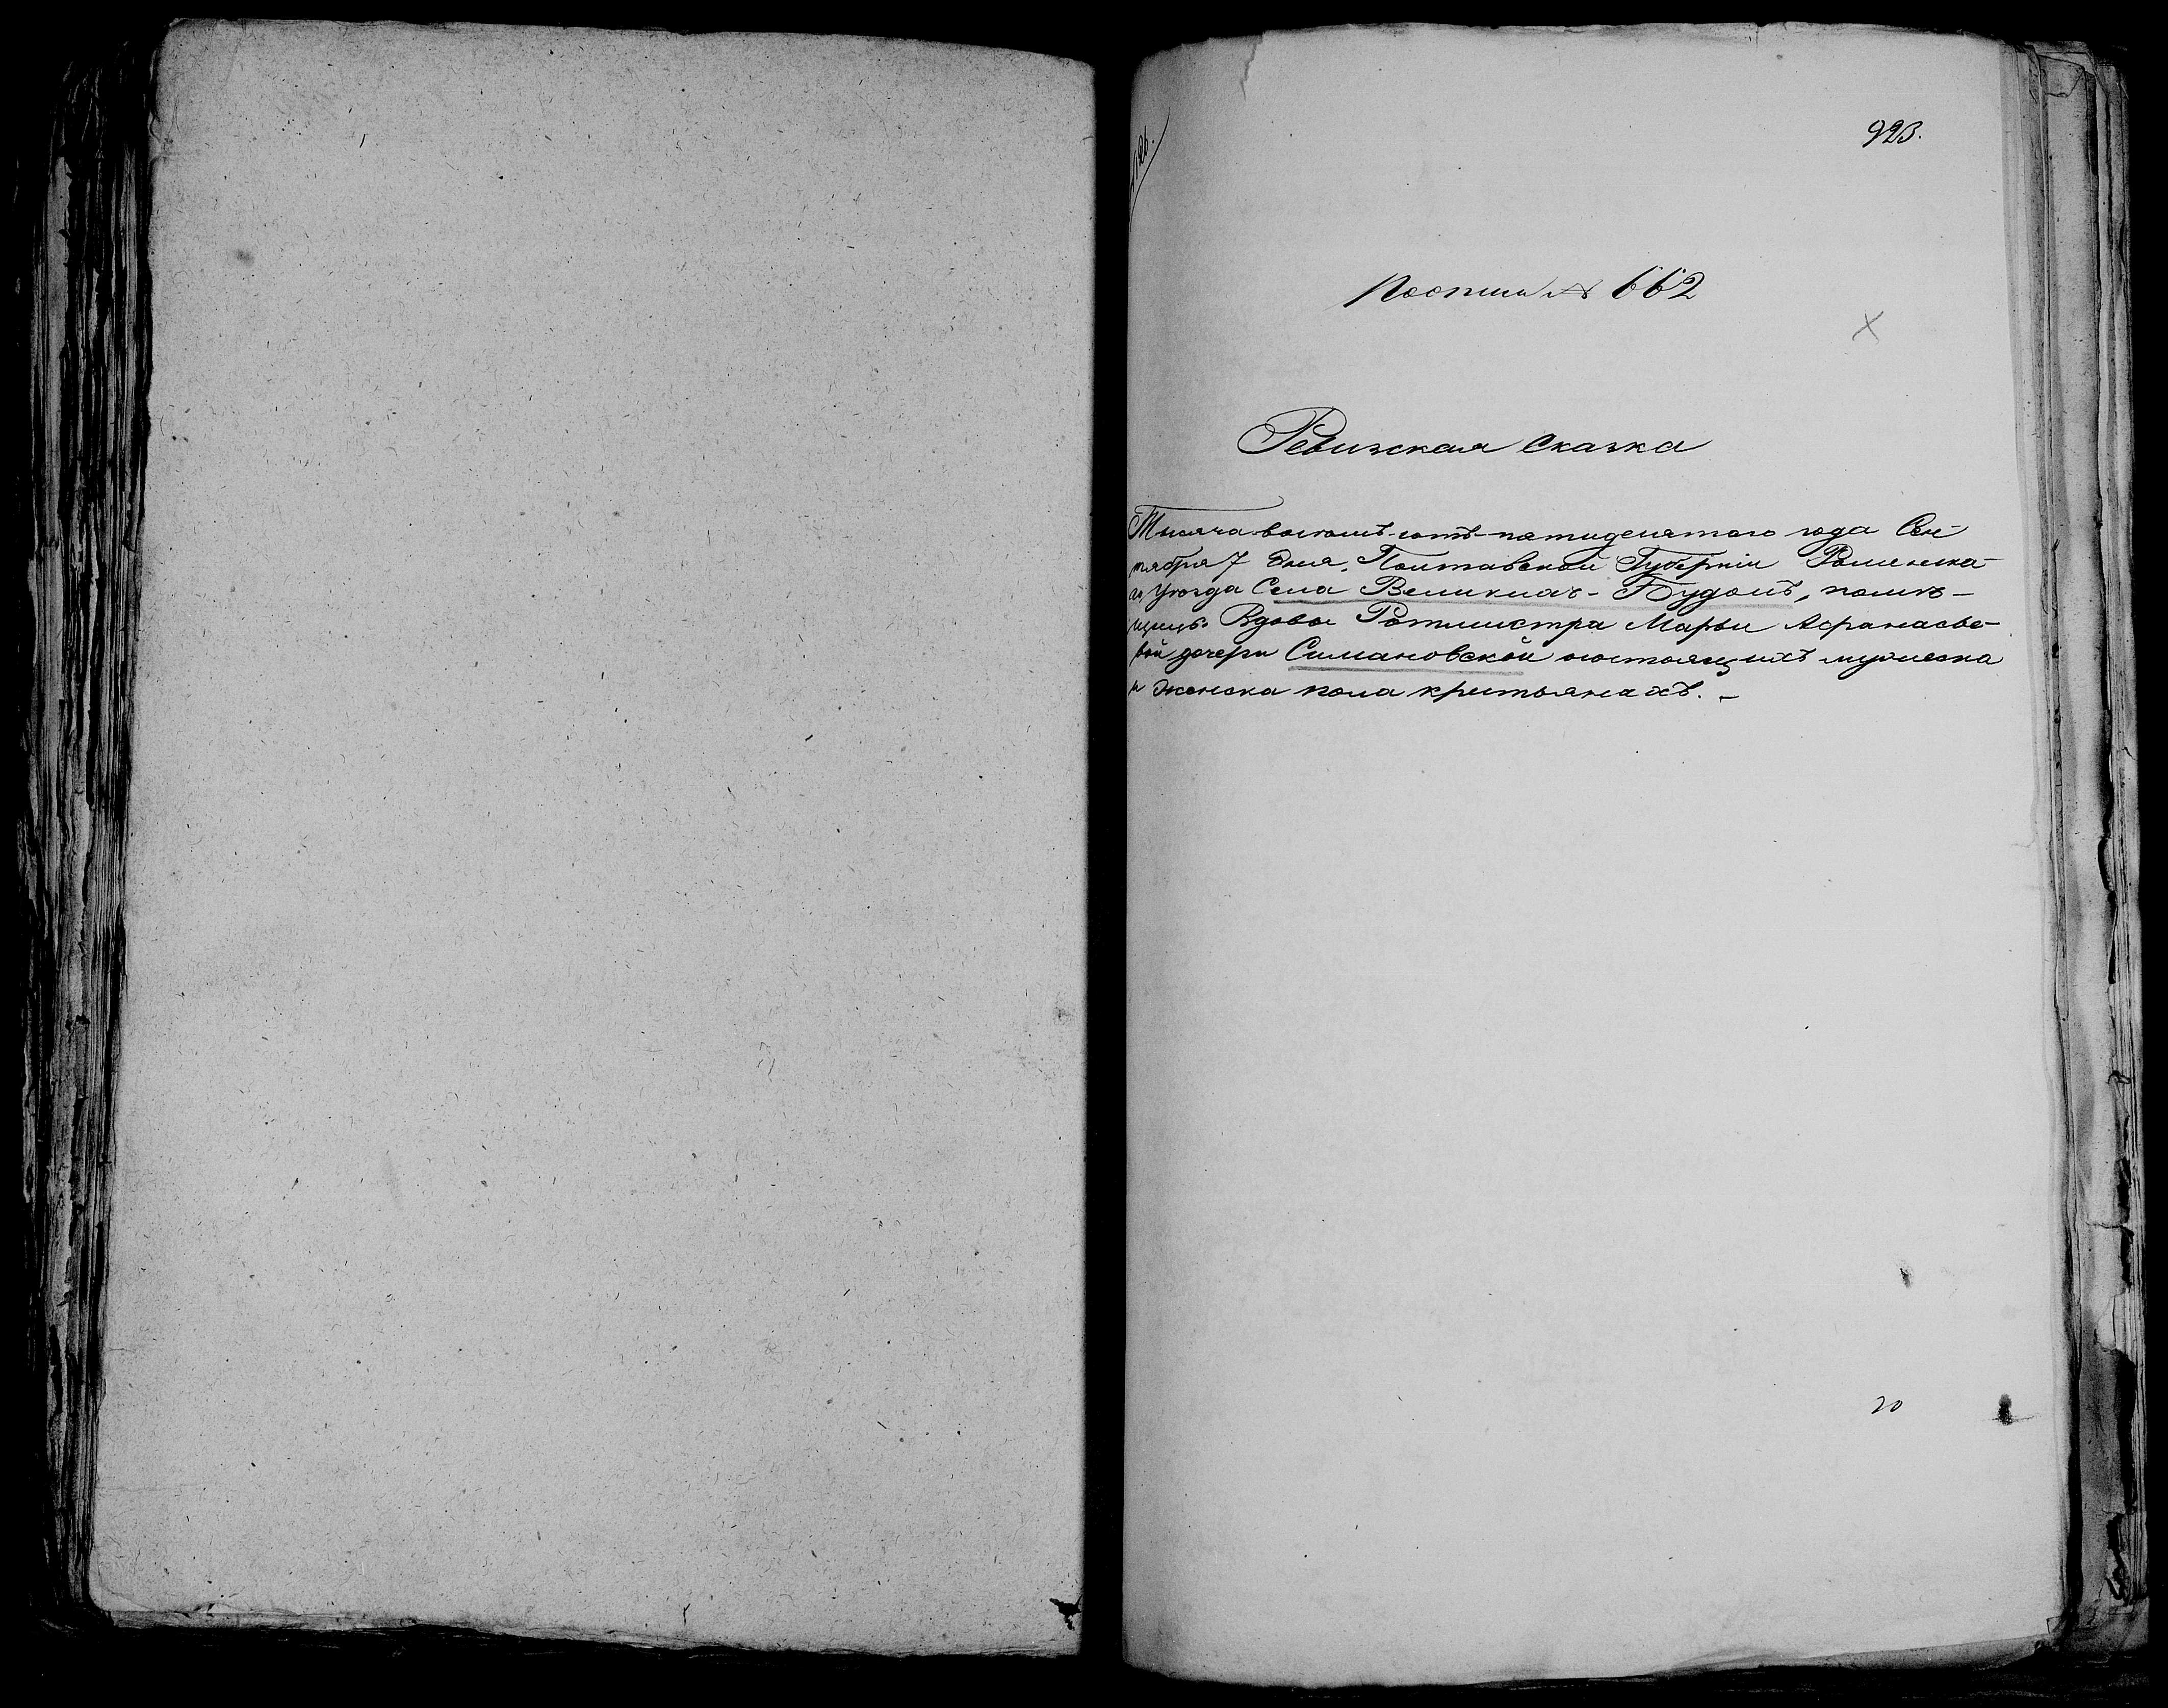 923.
По описи № 662
Ревизская Сказка
Тысяча восемьсотъ пятидесятого года Сен-
тября 7 дня, Полтавской Губерніи Роменска-
го уѣзда Села Великихъ-Будокъ, помѣ-
щицы Вдовы Ротмистра Марьи Афанасье-
вой дочери Симановской состоящихъ мужеска
и женска пола крестьянахъ. –
20